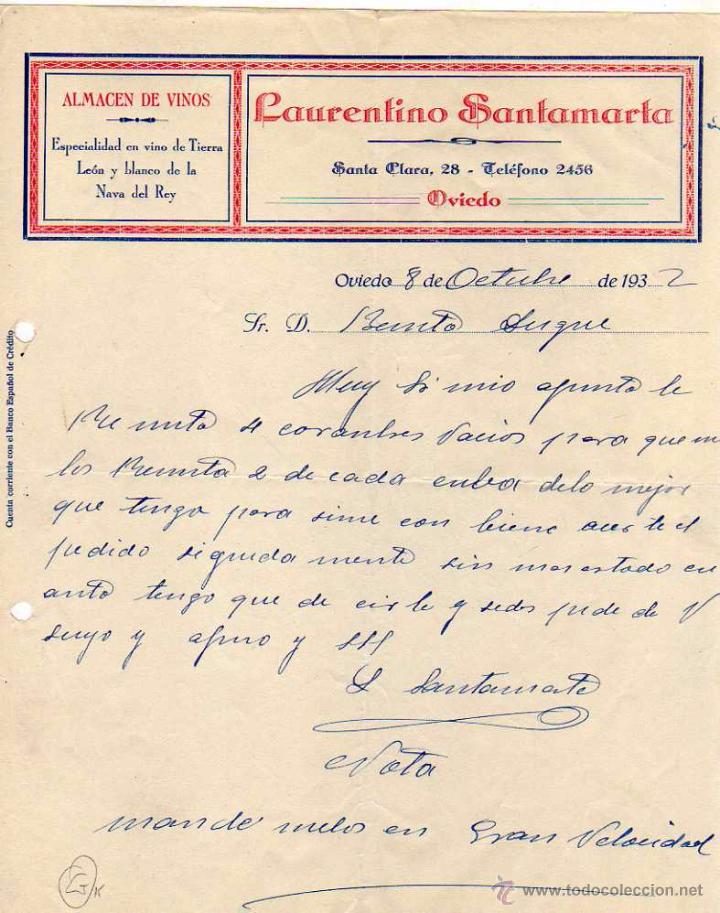 ALMACEN DE VINOS
Especialidad en vino de Tierra
León y blanco de la
Nava del Rey
Laurentino Santamarta
Santa Clara, 28 - Teléfono 2456
Oviedo
Oviedo 8 de Octubre de 1932
Sr. D. Benito Duque
Cuenta corriente con el Banco Español de Crédito
Muy Sr mio le
4 vacios para que me
los 2 de cada cuba delo mejor
que tengo para si me con biene acer le el
pedido seguida mente sin mas estado en
anto tengo que de cir le y sedes pide de V
suyo y afmo y SSS
L Santamarta
Nota
mande melos en Gran Velocidad
www.todocoleccion.net